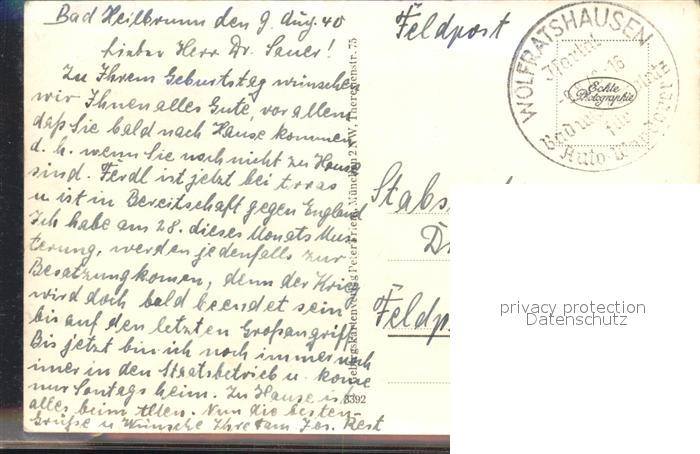 Bad Heilbrunn den 9. Aug. 40
Lieber Herr Dr. Sauer!
Zu Ihrem Geburtstag wünschen
wir Ihnen alles Gute, vor allem
daß Sie bald nach Hause kommen
d. h. wenn Sie noch nicht zu Hause
sind. Ferdl ist jetzt bei
u ist in Bereitschaft gegen England
Ich habe am 28. dieses Monats Mus-
terung, werden jedenfalls zur
Besatzung komen, denn der Krieg
wird doch bald beendet sein
bis auf den letzten Großangriff.
Bis jetzt bin ich noch immer noch
imer in den Staatsbetrieb u. kome
nur Sontags heim. Zu Hause ist
alles beim Alten. Nun die besten
Grüße u Wünsche Ihre Fam. Jos. Rest
Feldpost
WOLFRATSHAUSEN
Isartal
16
Echte
Photographie
für
Auto-
Stabs
D
Feldp
Peter Friedl, München 2 NW, Theresienstr. 75
8392
privacy protection
Datenschutz